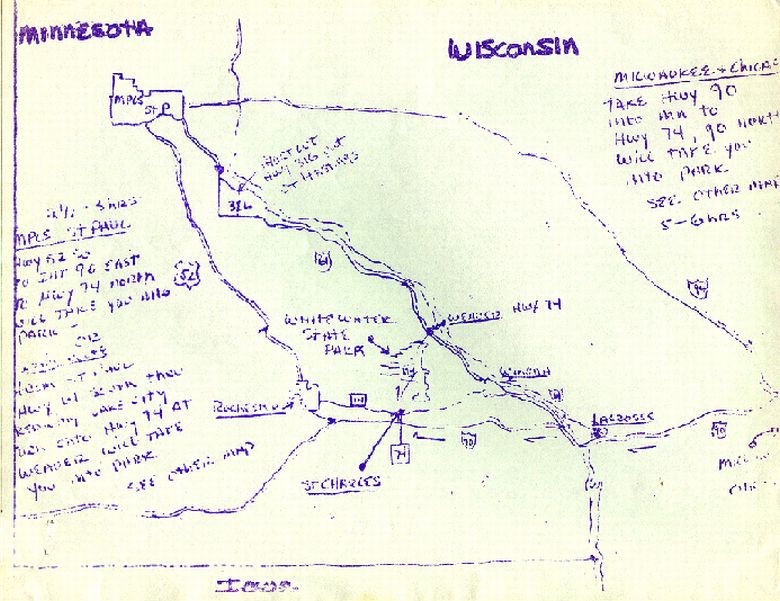 MINNESOTA
WISCONSIN
MILWAUKEE + CHICA
TAKE HWY 90
INTO MN TO
HWY 74, 90 NORTH
WILL TAKE YOU
INTO PARK
SEE OTHER MAP
5-6 HRS
MPLS
ST P
HWY 316 OUT
AT HASTINGS
316
HRS
MPLS ST PAUL
HWY 52 TO
TO INT 90 EAST
TO HWY 74 NORTH
WILL TAKE YOU INTO
PARK
52
61
94
WEAVER HWY 74
WHITEWATER
STATE
PARK
WINONA
LACROSSE
ST PAUL
HWY 61 SOUTH THRU
LAKE CITY
TURN ONTO HWY 74 AT
WEAVER WILL TAKE
YOU INTO PARK
SEE OTHER MAP
ROCHESTER
90
90
74
ST CHARLES
IOWA